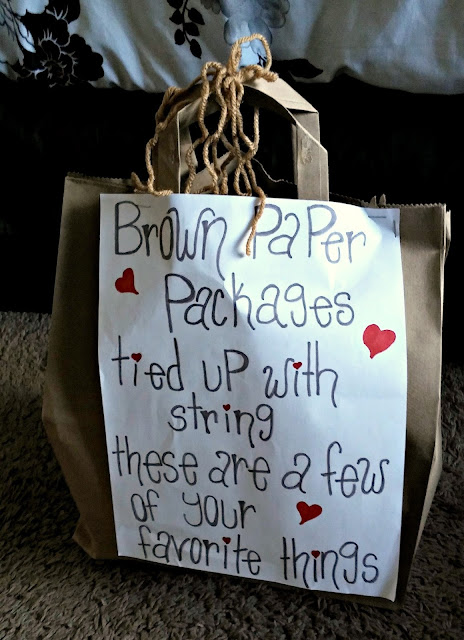 Brown Paper
Packages
tied up with
string
these are a few
of your
favorite things